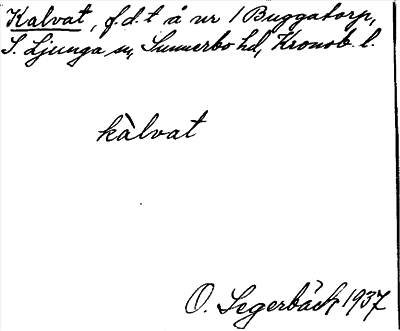 Kalvat, f.d.t å nr 1 Buggatorp,
S. Ljunga sn, Sunnerbo hd, Kronob. l.
kàlvat
O. Segerbäck 1937